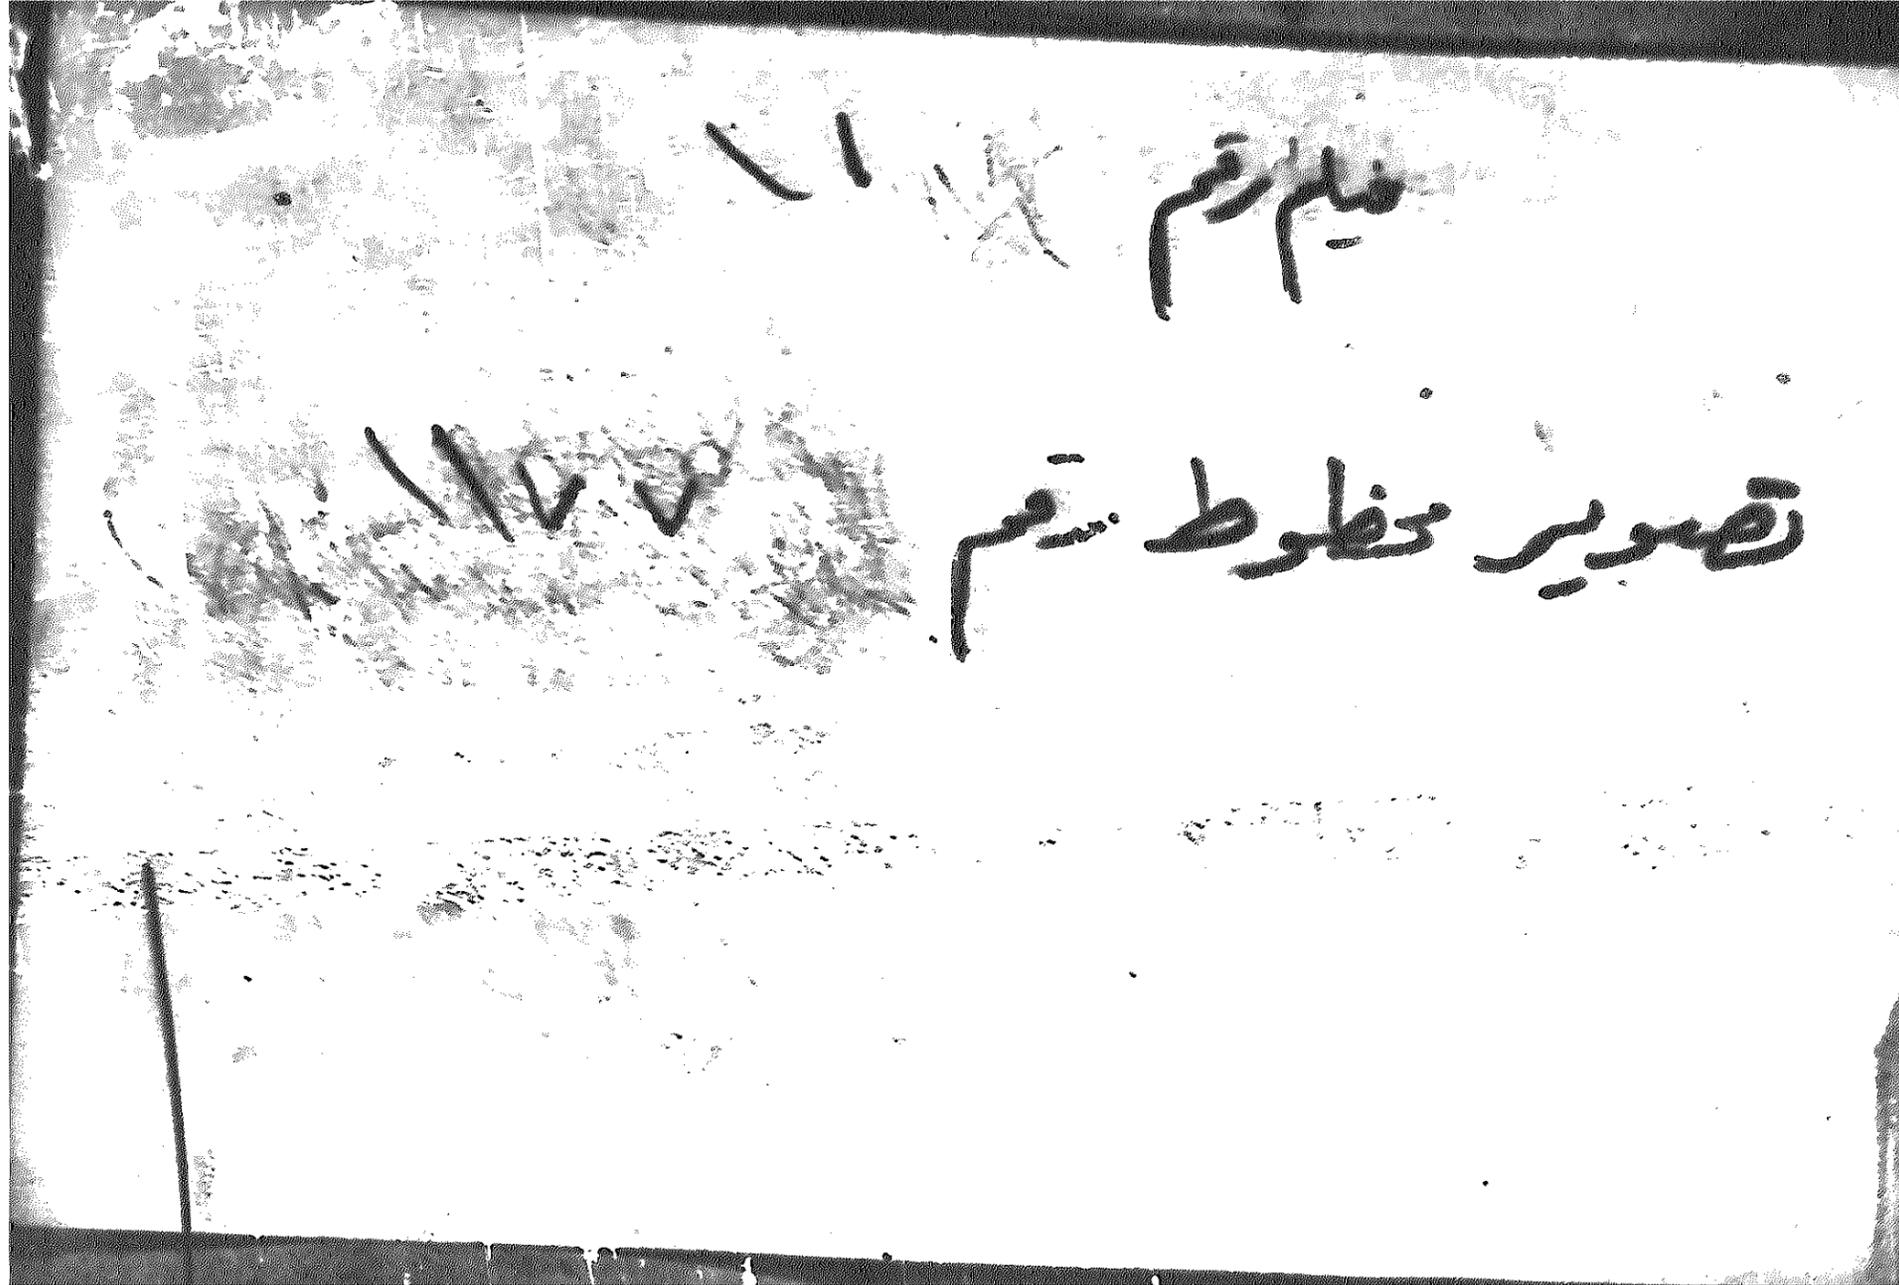 فيلم رقم ١١
تصوير مخطوط رقم ١١٧٧